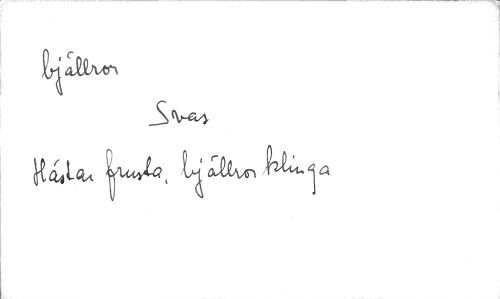 bjällror
Svas
Hästar frusta, bjällror klinga